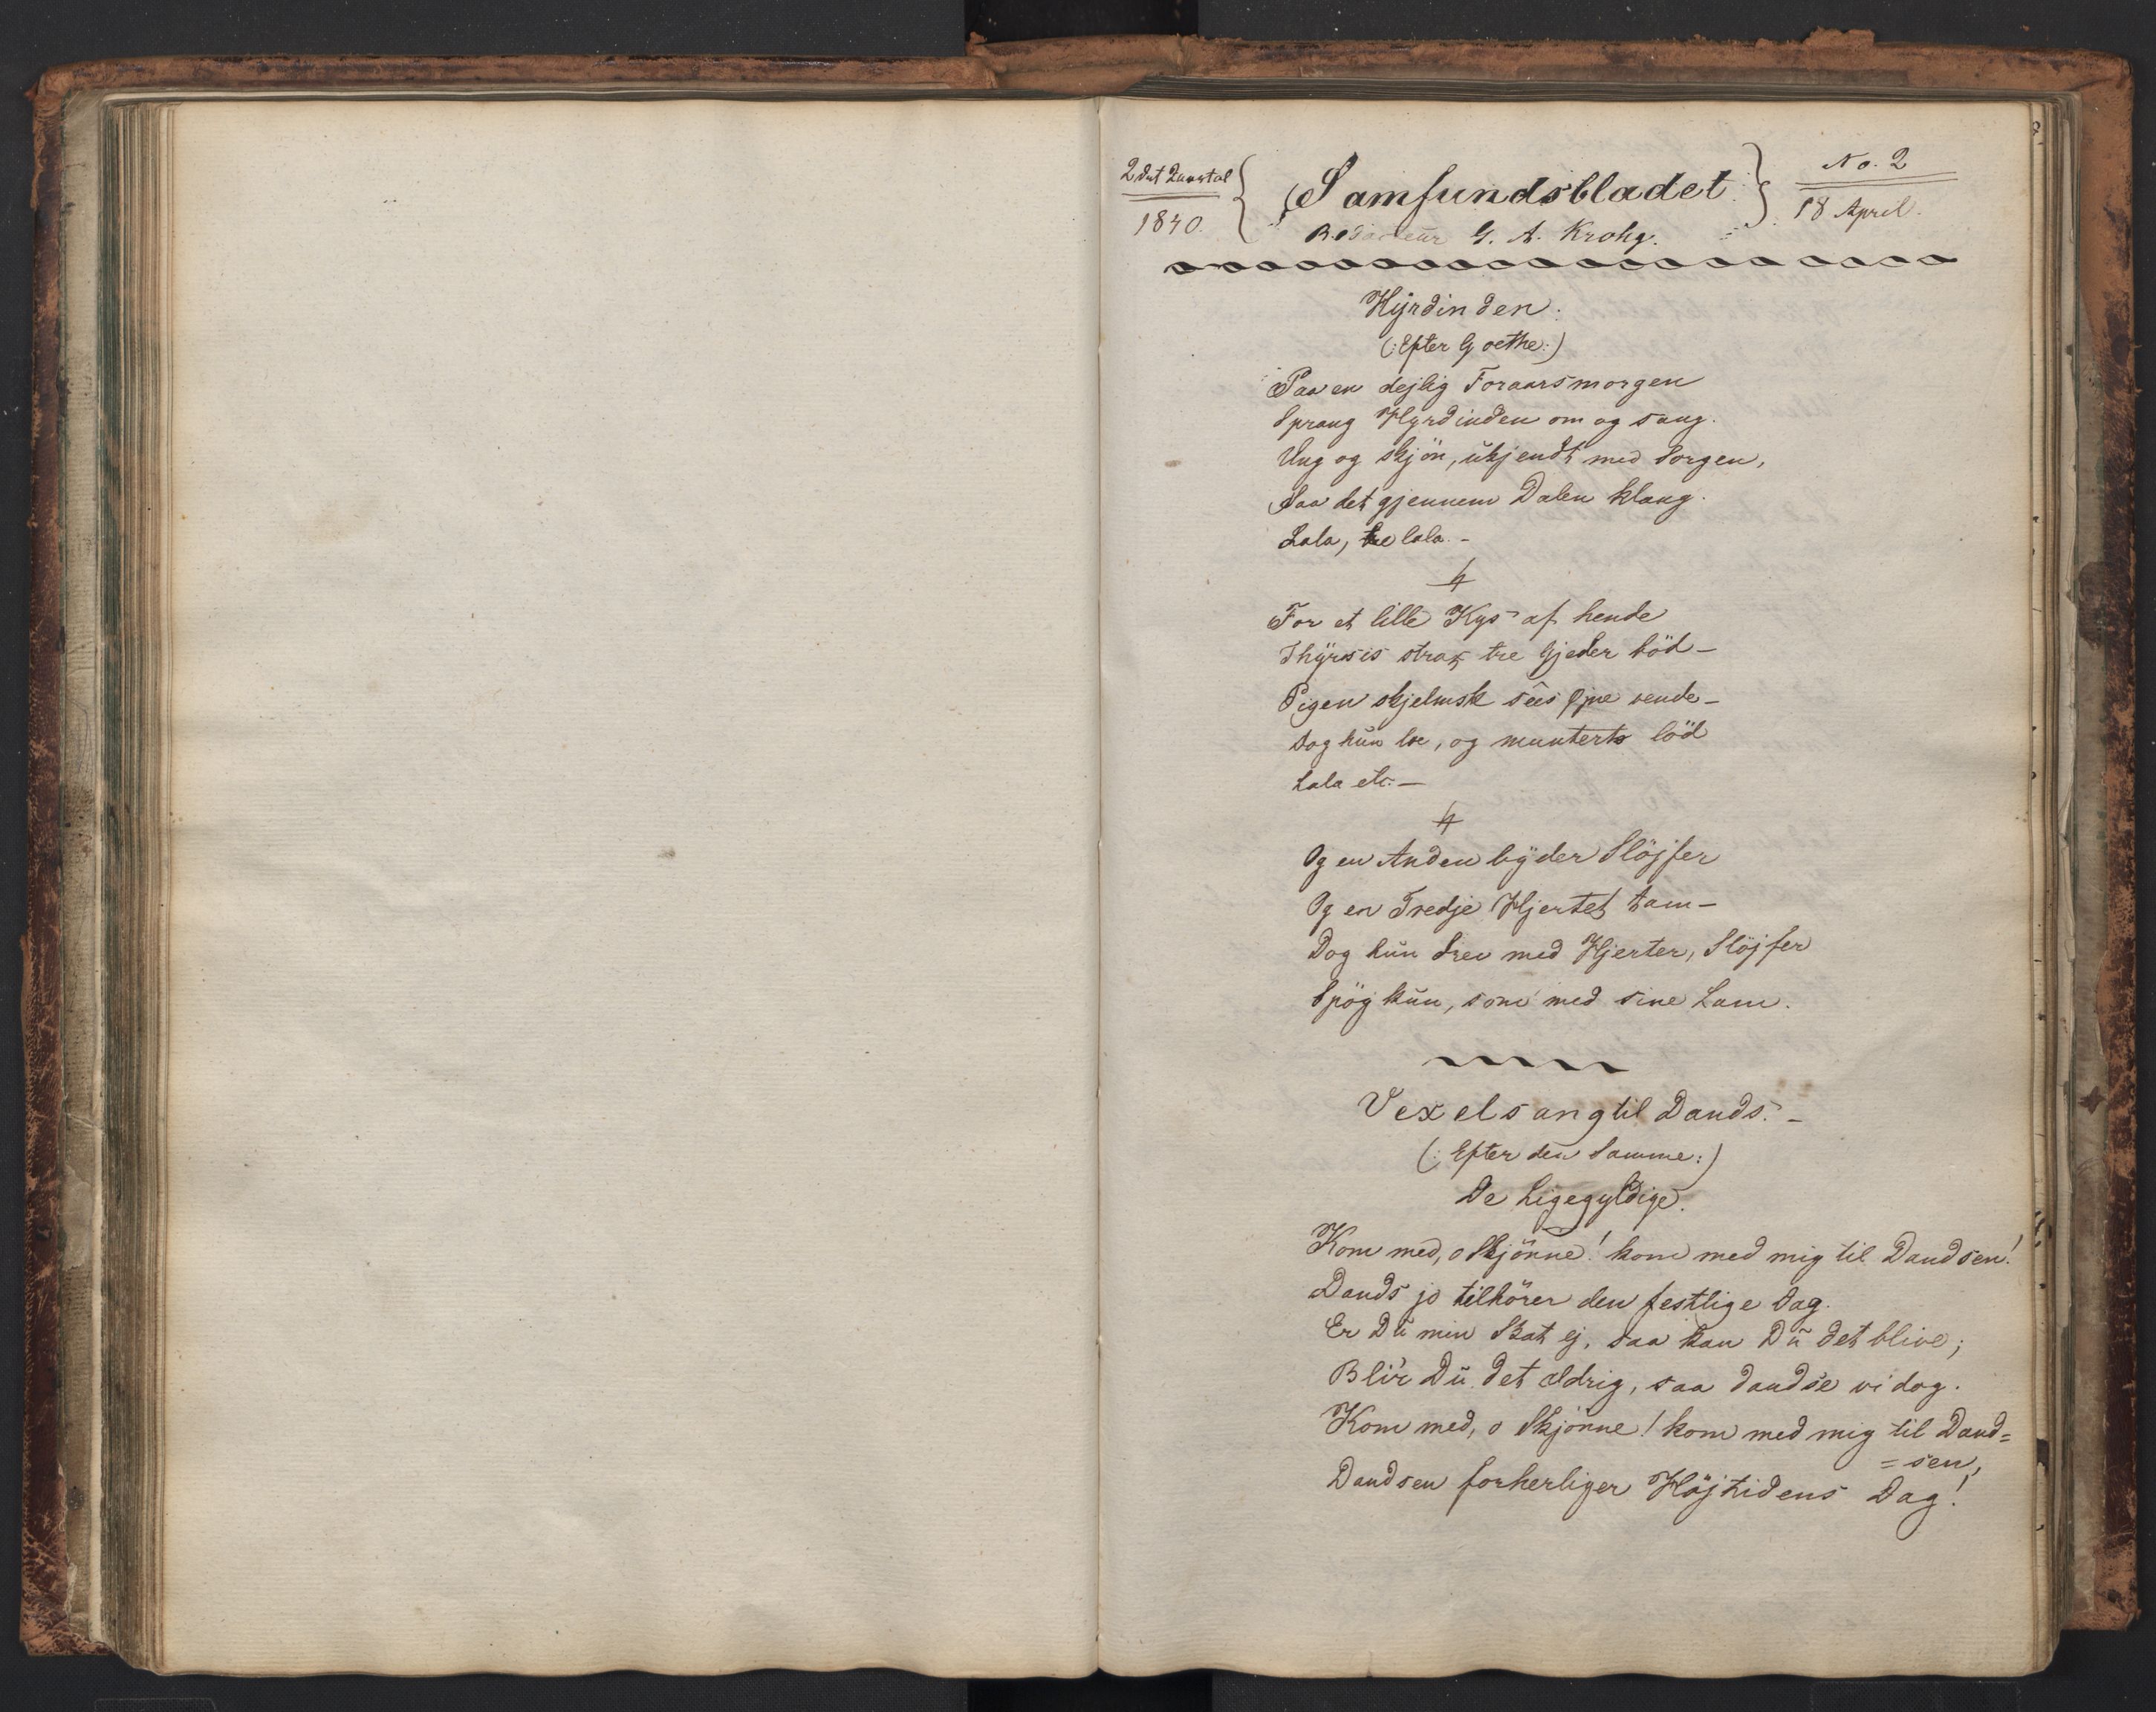 2det Quartal
1840.
Samfundsbladet
Redacteur G. A. Krohg.
No. 2
18 April.
Hyrdinden.
(: Efter Goethe :)
Paa en dejlig Foraarsmorgen
Sprang Hyrdinden om og sang.
Ung og skjön, ukjendt med Sorgen,
Saa det gjennem Dalen klang.
Lala, tre lala. -
For et lille Kys af hende
Thyrsis strax tre Gjeder böd -
Pigen skjelmsk sees Öjne vende -
Dog hun loe, og muntert löd
Lala etc. -
Og en Anden byder Slöjfer
Og en Tredje Hjertet tam -
Dog hun drev med Hjerter, Slöjfer
Spög kun, som med sine Lam.
Vexelsang til Dands. -
(: Efter den Samme :)
De Ligegyldige.
Kom med, o Skjönne! kom med mig til Dandsen!
Dands jo tilhörer den festlige Dag.
Er Du min Skat ej, saa kan Du det blive;
Bliv'r Du det aldrig, saa dandse vi dog.
Kom med, o Skjönne! kom med mig til Dand=
=sen,
Dandsen forherliger Höjtidens Dag!